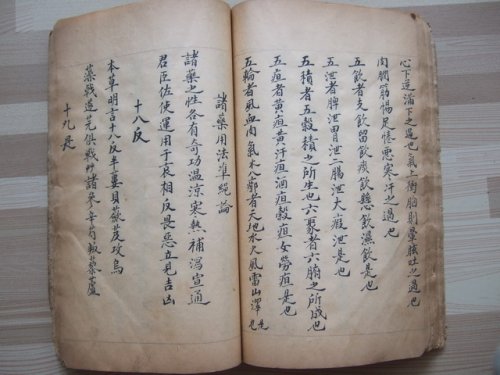 心下逆滿下之過也氣上衝胸則暈眩吐之過也
肉瞤筋惕足惓惡寒汗之過也
五飲者支飲留飲痰飲懸飲濕飲是也
五泄者脾泄胃泄二腸泄大瘕泄是也
五積者五穀積之所生也六聚者六腑之所成也
五疸者黃疸黃汗疸酒疸穀疸女勞疸是也
五輪者風血肉氣水八廓者天地水火風雷山澤也
諸藥用法準繩論
諸藥之性各有奇功溫涼寒熱補瀉宣通
君臣佐使運用于衷相反畏惡立見吉凶
十八反
本草明言十八反半蔞貝蘞芨攻烏
藻戟遂芫俱戰艸諸參辛芍叛藜蘆
十九畏